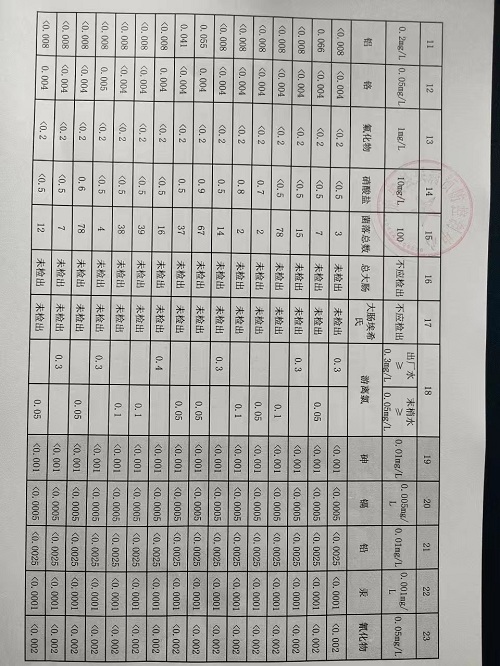 11 12 13 14 15 16 17 18 19 20 21 22 23
0.2mg/L 0.05mg/L 1mg/L 10mg/L 100 不应检出 不应检出 出厂水≥0.3mg/L 末梢水≥0.05mg/L 0.01mg/L 0.005mg/L 0.01mg/L 0.001mg/L 0.05mg/L
铝 铬 氟化物 硝酸盐 菌落总数 总大肠 大肠埃希氏 游离氯 砷 镉 铅 汞 氰化物
<0.008 <0.004 <0.2 <0.5 3 未检出 未检出 0.3 <0.001 <0.0005 <0.0025 <0.0001 <0.002
0.066 <0.004 <0.2 <0.5 7 未检出 未检出 0.05 <0.001 <0.0005 <0.0025 <0.0001 <0.002
<0.008 <0.004 <0.2 <0.5 15 未检出 未检出 0.3 <0.001 <0.0005 <0.0025 <0.0001 <0.002
<0.008 <0.004 <0.2 <0.5 78 未检出 未检出 0.1 <0.001 <0.0005 <0.0025 <0.0001 <0.002
<0.008 <0.004 <0.2 0.7 2 未检出 未检出 0.05 <0.001 <0.0005 <0.0025 <0.0001 <0.002
<0.008 <0.004 <0.2 0.8 2 未检出 未检出 0.1 <0.001 <0.0005 <0.0025 <0.0001 <0.002
<0.008 <0.004 <0.2 0.5 14 未检出 未检出 0.3 <0.001 <0.0005 <0.0025 <0.0001 <0.002
0.055 0.004 <0.2 0.9 67 未检出 未检出 0.05 <0.001 <0.0005 <0.0025 <0.0001 <0.002
0.041 <0.004 <0.2 0.5 37 未检出 未检出 0.05 <0.001 <0.0005 <0.0025 <0.0001 <0.002
<0.008 0.004 <0.2 <0.5 16 未检出 未检出 0.4 <0.001 <0.0005 <0.0025 <0.0001 <0.002
<0.008 <0.004 <0.2 <0.5 39 未检出 未检出 0.1 <0.001 <0.0005 <0.0025 <0.0001 <0.002
<0.008 <0.004 <0.2 <0.5 38 未检出 未检出 0.1 <0.001 <0.0005 <0.0025 <0.0001 <0.002
<0.008 0.005 <0.2 <0.5 4 未检出 未检出 0.3 <0.001 <0.0005 <0.0025 <0.0001 <0.002
<0.008 <0.004 <0.2 0.6 78 未检出 未检出 0.05 <0.001 <0.0005 <0.0025 <0.0001 <0.002
<0.008 <0.004 <0.2 <0.5 7 未检出 未检出 0.3 <0.001 <0.0005 <0.0025 <0.0001 <0.002
<0.008 0.004 <0.2 <0.5 12 未检出 未检出 0.05 <0.001 <0.0005 <0.0025 <0.0001 <0.002